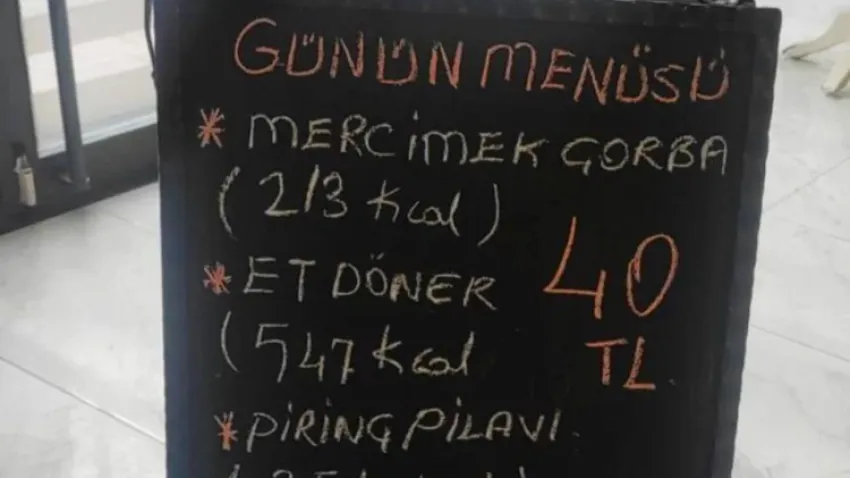 GÜNÜN MENÜSÜ
* MERCİMEK ÇORBA
(213 Kcal)
* ET DÖNER
(547 Kcal
40
TL
* PİRİNÇ PİLAVI